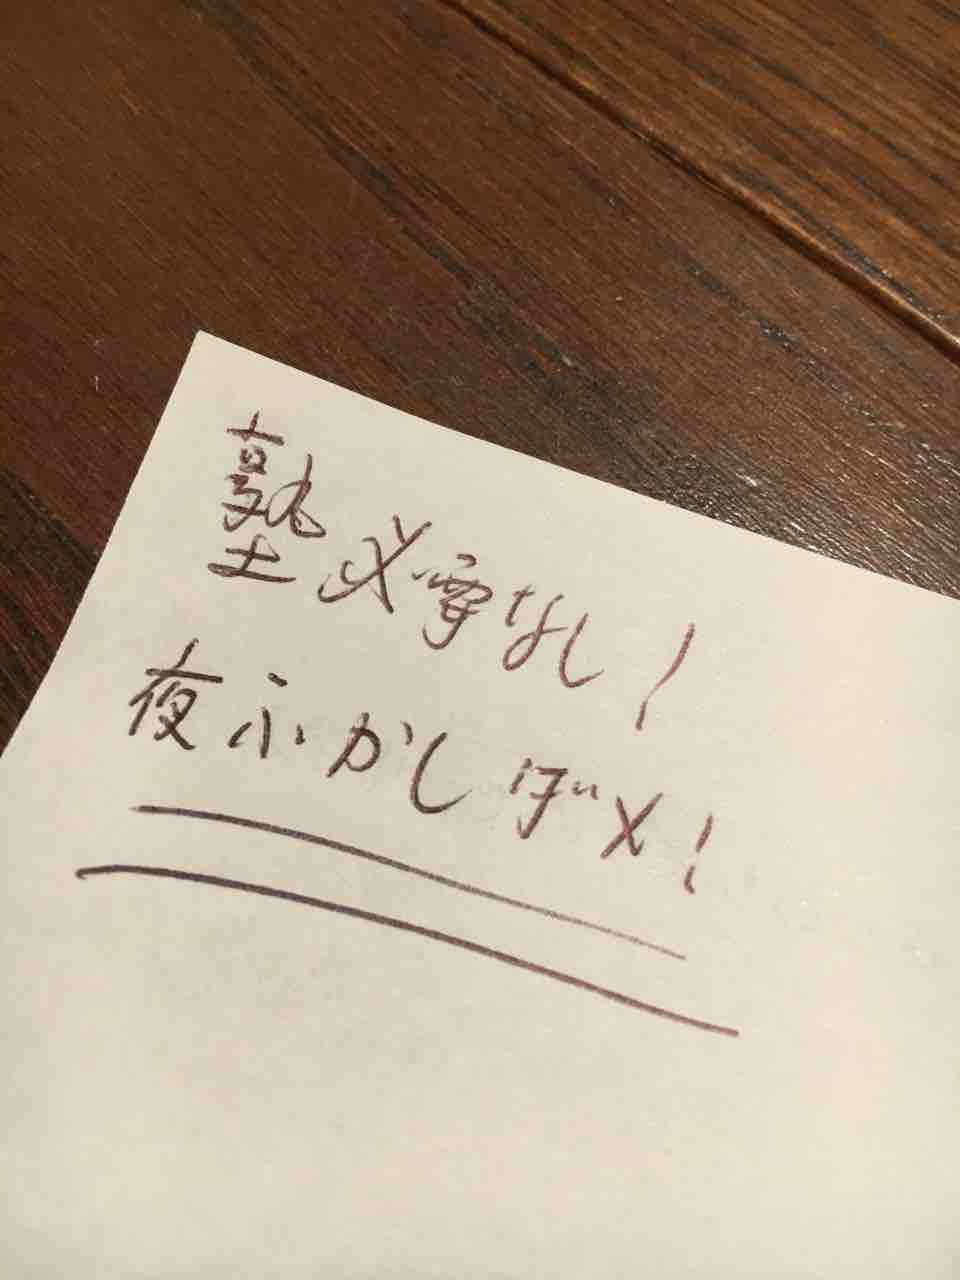 塾必要なし!
夜ふかしダメ!